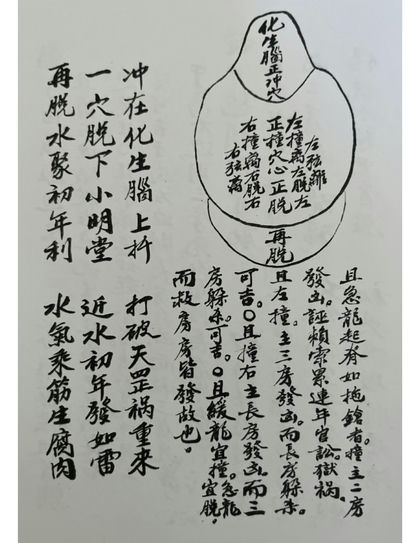 化生腦正冲穴
左弦離
左撞离左脱左
正撞穴心正脱
右撞离右脱右
右弦离
再脱
且急龍起脊如拖鎗者。撞主二房
發凶。誣賴索累連年官訟獄禍。
且左撞。主三房發凶。而長房躱杀。
可吉。〇且撞右主長房發凶。而三
房躱杀。可吉。〇且緩龍宜撞。急龍宜脱，
而救房房皆發故也。
冲在化生腦上扦 打破天罡祸重來
一穴脱下小明堂 近水初年發如雷
再脱水聚初年利 水氣乘筋生腐肉